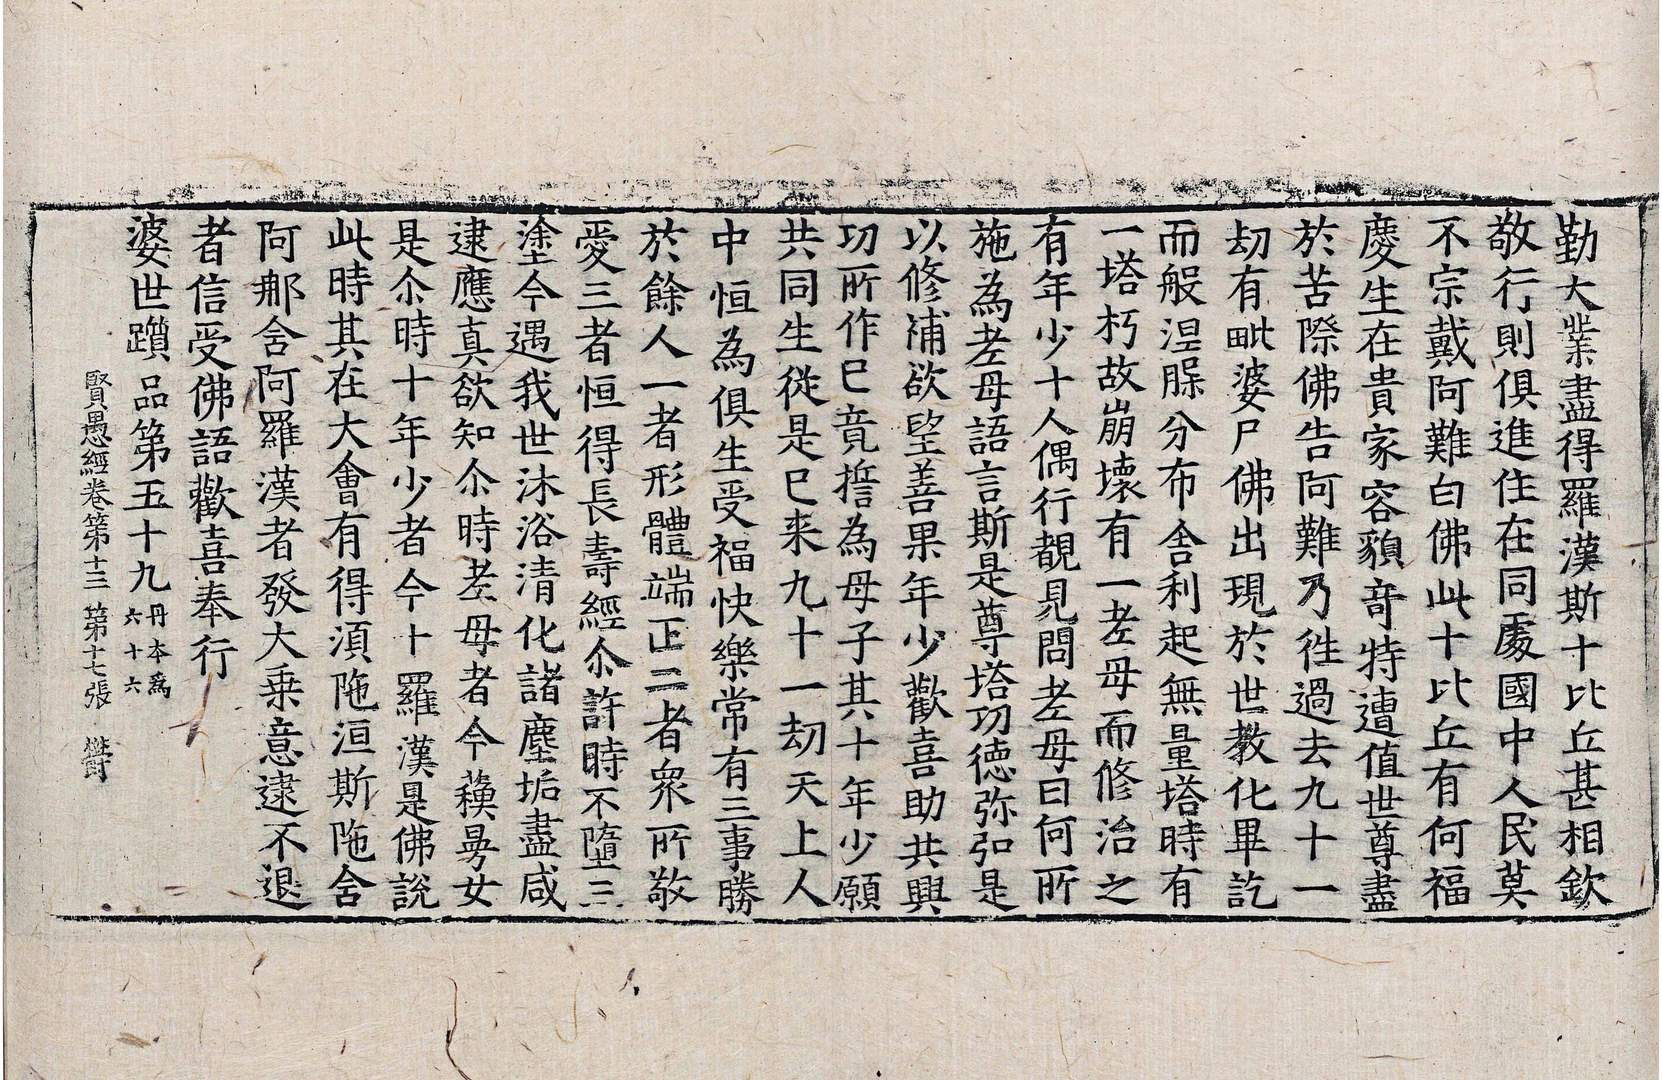 勤大業盡得羅漢斯十比丘甚相欽
敬行則俱進住在同處國中人民莫
不宗戴阿難白佛此十比丘有何福
慶生在貴家容貌奇特遭值世尊盡
於苦際佛告阿難乃徃過去九十一
劫有毗婆尸佛出現於世教化畢訖
而般涅脲分布舍利起無量塔時有
一塔朽故崩壞有一老母而修治之
有年少十人偶行覩見問老母曰何所
施為老母語言斯是尊塔功德弥弘是
以修補欲望善果年少歡喜助共興
功所作已竟誓為母子其十年少願
共同生從是已来九十一劫天上人
中恒為俱生受福快樂常有三事勝
於餘人一者形體端正二者衆所敬
愛三者恒得長壽經尒許時不墮三
塗今遇我世沐浴清化諸塵垢盡咸
逮應真欲知尒時老母者今蘓曼女
是尒時十年少者今十羅漢是佛說
此時其在大會有得湏陁洹斯陁舍
阿那舍阿羅漢者發大乗意逮不退
者信受佛語歡喜奉行
婆世躓品第五十九 丹本爲六十六
賢愚經卷第十三 第十七張 欝